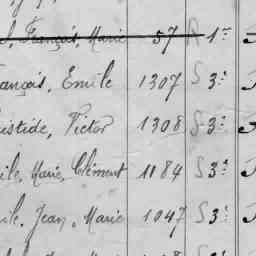 François, Marie 57 A 1re
ançois, Emile 1307 S 3e
istide, Victor 1308 S 3e
ile, Marie, Clément 1184 S 3e
ile, Jean, Marie 1047 S 3e